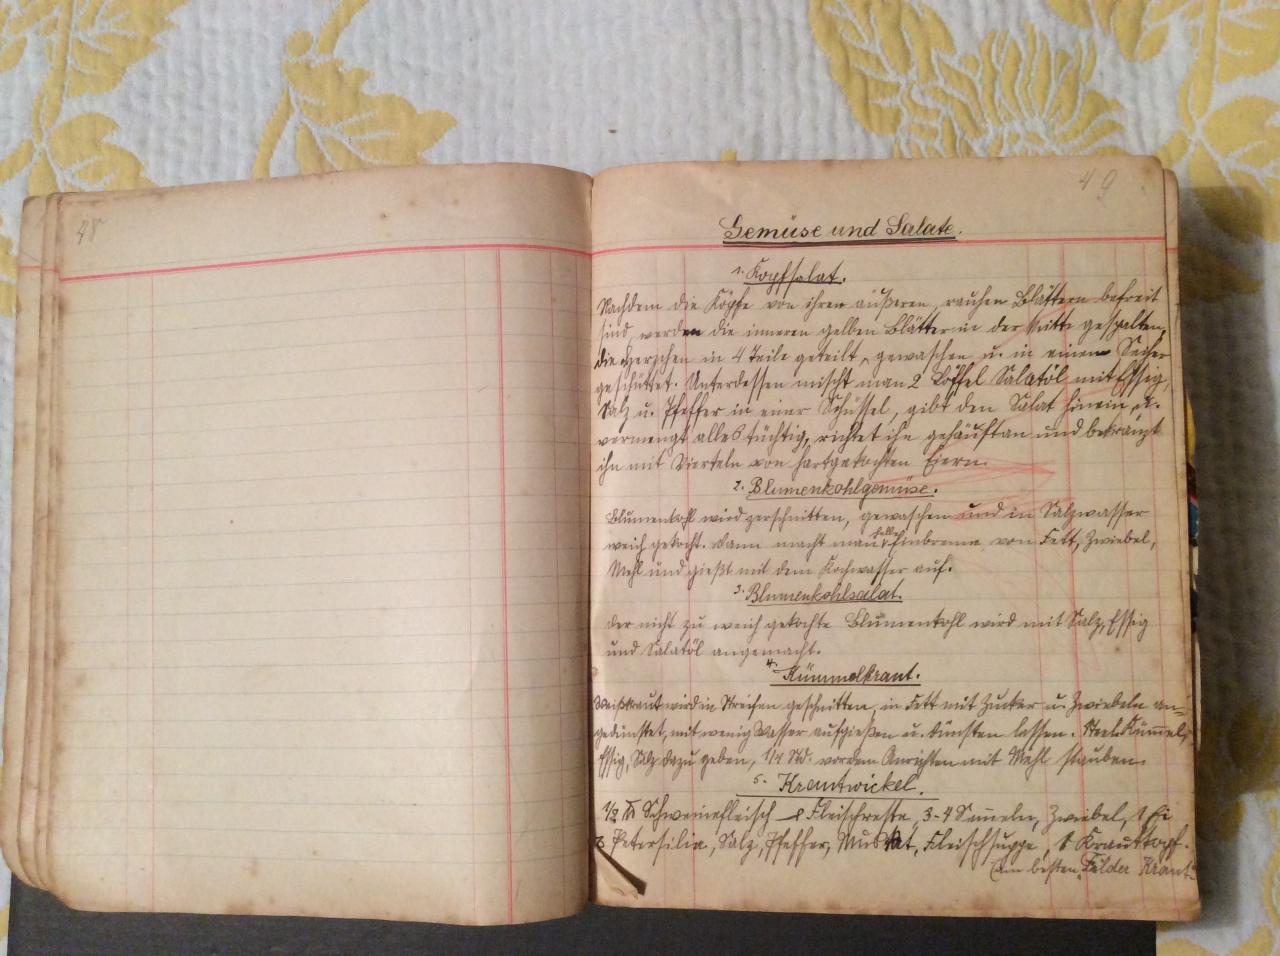 48
49
Gemüse und Salate.
1. Kopfsalat.
Nachdem die Köpfe von ihren äußeren, rauhen Blättern befreit
sind, werden die inneren gelben Blätter in der Mitte gespalten,
die Herzchen in 4 Teile geteilt, gewaschen u. in einem Seiher
geschüttet. Unterdessen mischt man 2 Löffel Salatöl mit Essig,
Salz u. Pfeffer in einer Schüssel, gibt den Salat hinein u.
vermengt alles tüchtig, richtet ihn gehäuft an und bekränzt
ihn mit Vierteln von hartgekochten Eiern.
2. Blumenkohlgemüse.
Blumenkohl wird zerschnitten, gewaschen und in Salzwasser
weich gekocht. Dann macht man helle Einbrenne von Fett, Zwiebel,
Mehl und gießt mit dem Kochwasser auf.
3. Blumenkohlsalat.
Der nicht zu weich gekochte Blumenkohl wird mit Salz, Essig
und Salatöl angemacht.
4. Kümmelkraut.
Weißkraut wird in Streifen geschnitten, in Fett mit Zucker u. Zwiebeln an=
gedünstet, mit wenig Wasser aufgießen u. dünsten lassen. Kümmel,
Essig, Salz dazu geben, 1/4 Std. vor dem Anrichten mit Mehl stauben.
5. Krautwickel.
1/2 ℔ Schweinefleisch Fleischreste, 3-4 Semeln, Zwiebel, 1 Ei
Petersilie, Salz, Pfeffer, Muskat, Fleischsuppe, 1 Krautkopf.
(am besten Filder Kraut